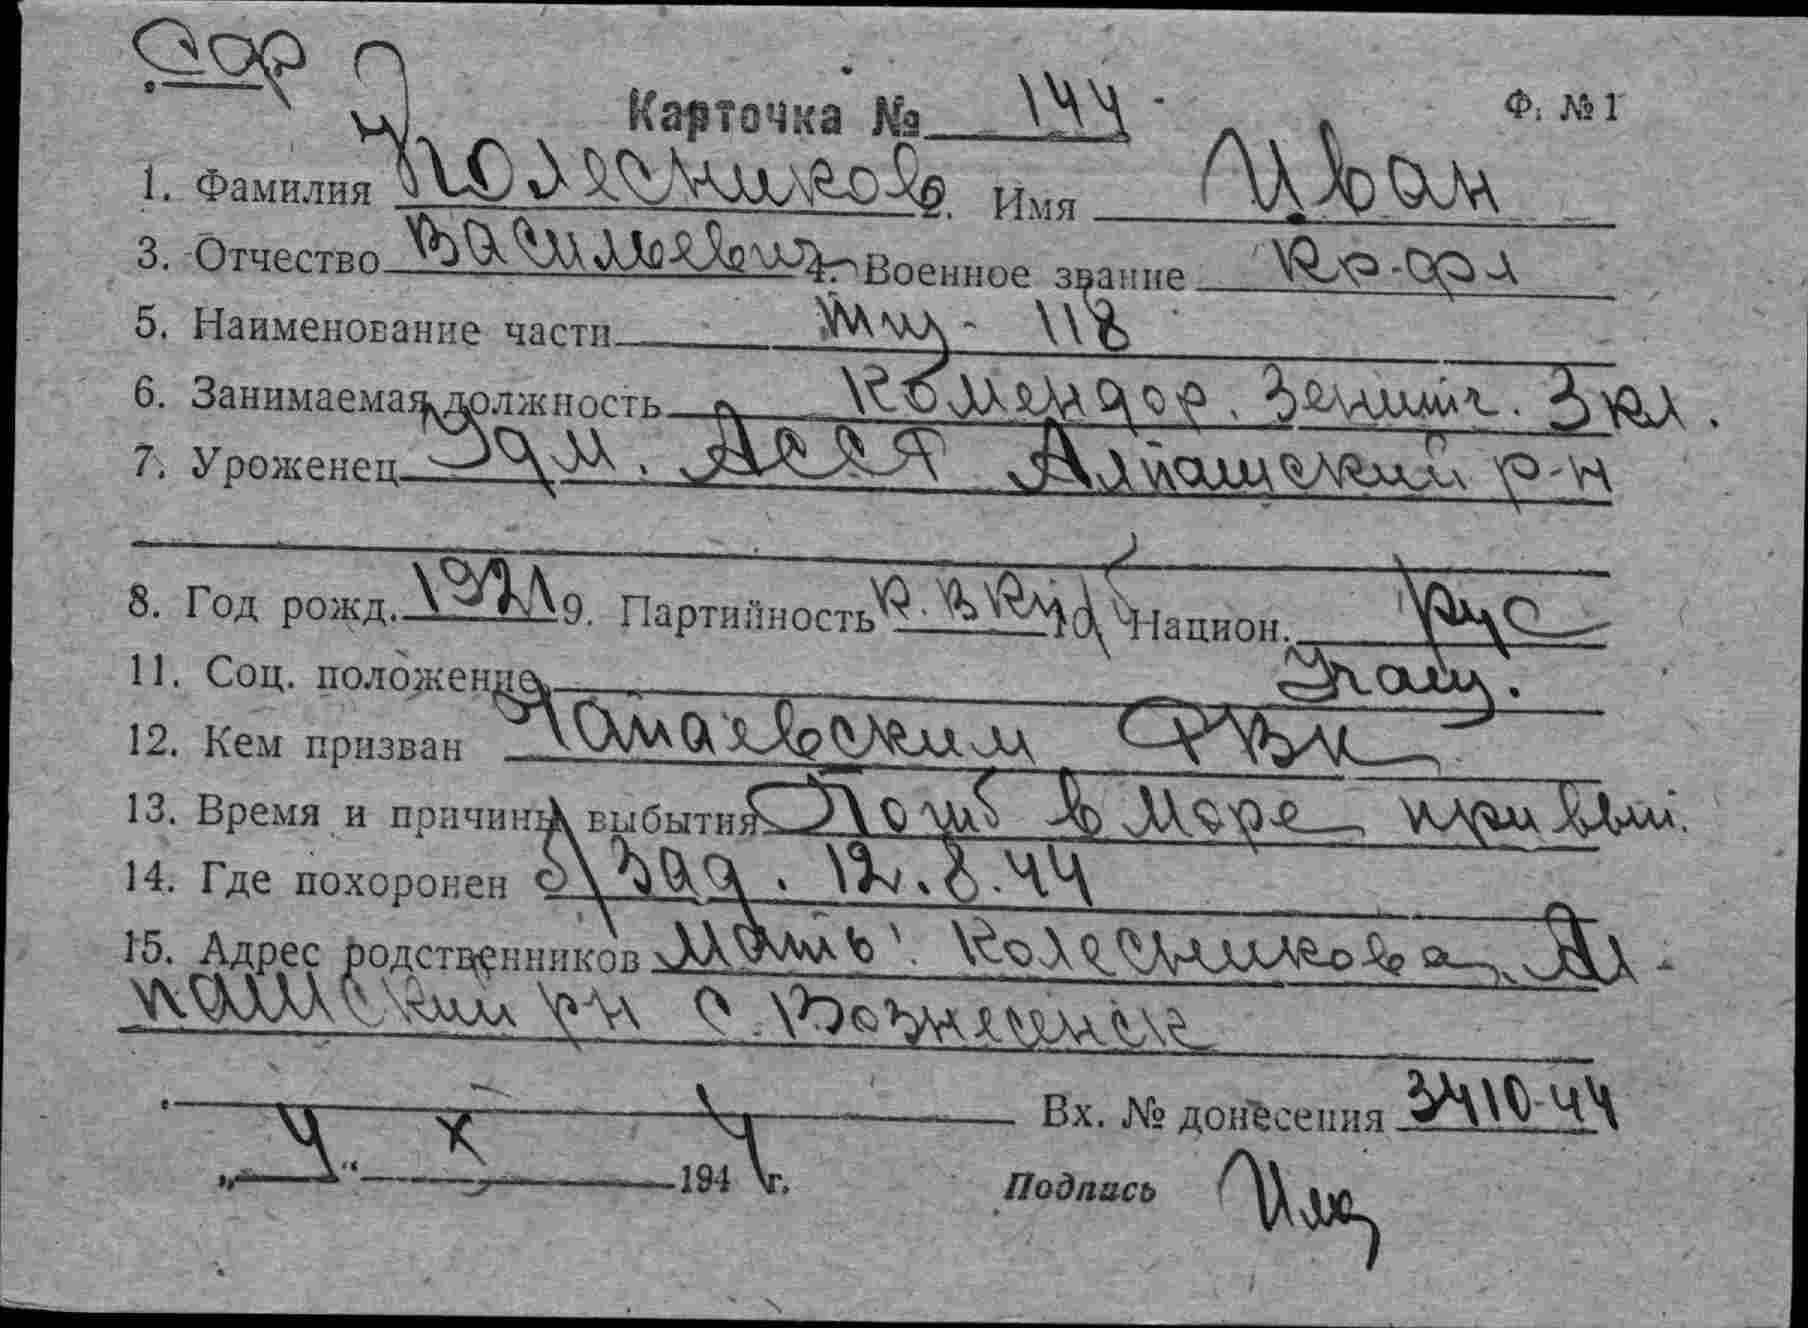 Карточка № 144
Ф. № 1
1. Фамилия Колесников 2. Имя Иван
3. Отчество Васильевич 4. Военное звание Кр-фл
5. Наименование части тщ - 118
6. Занимаемая должность Комендор. Зенитч. 3 кл.
7. Уроженец Удм. АССР Алнашский р-н
8. Год рожд. 1921 9. Партийность К.ВКП/б 10. Национ. Рус
11. Соц. положение Учащ.
12. Кем призван Чапаевским РВК
13. Время и причины выбытия Погиб в море при вып.
14. Где похоронен б/зад. 12.8.44
15. Адрес родственников Мать: Колесникова, Ал-
нашский рн с. Вознесенск
Вх. № донесения 3410-44
„4" X 1944 г. Подпись